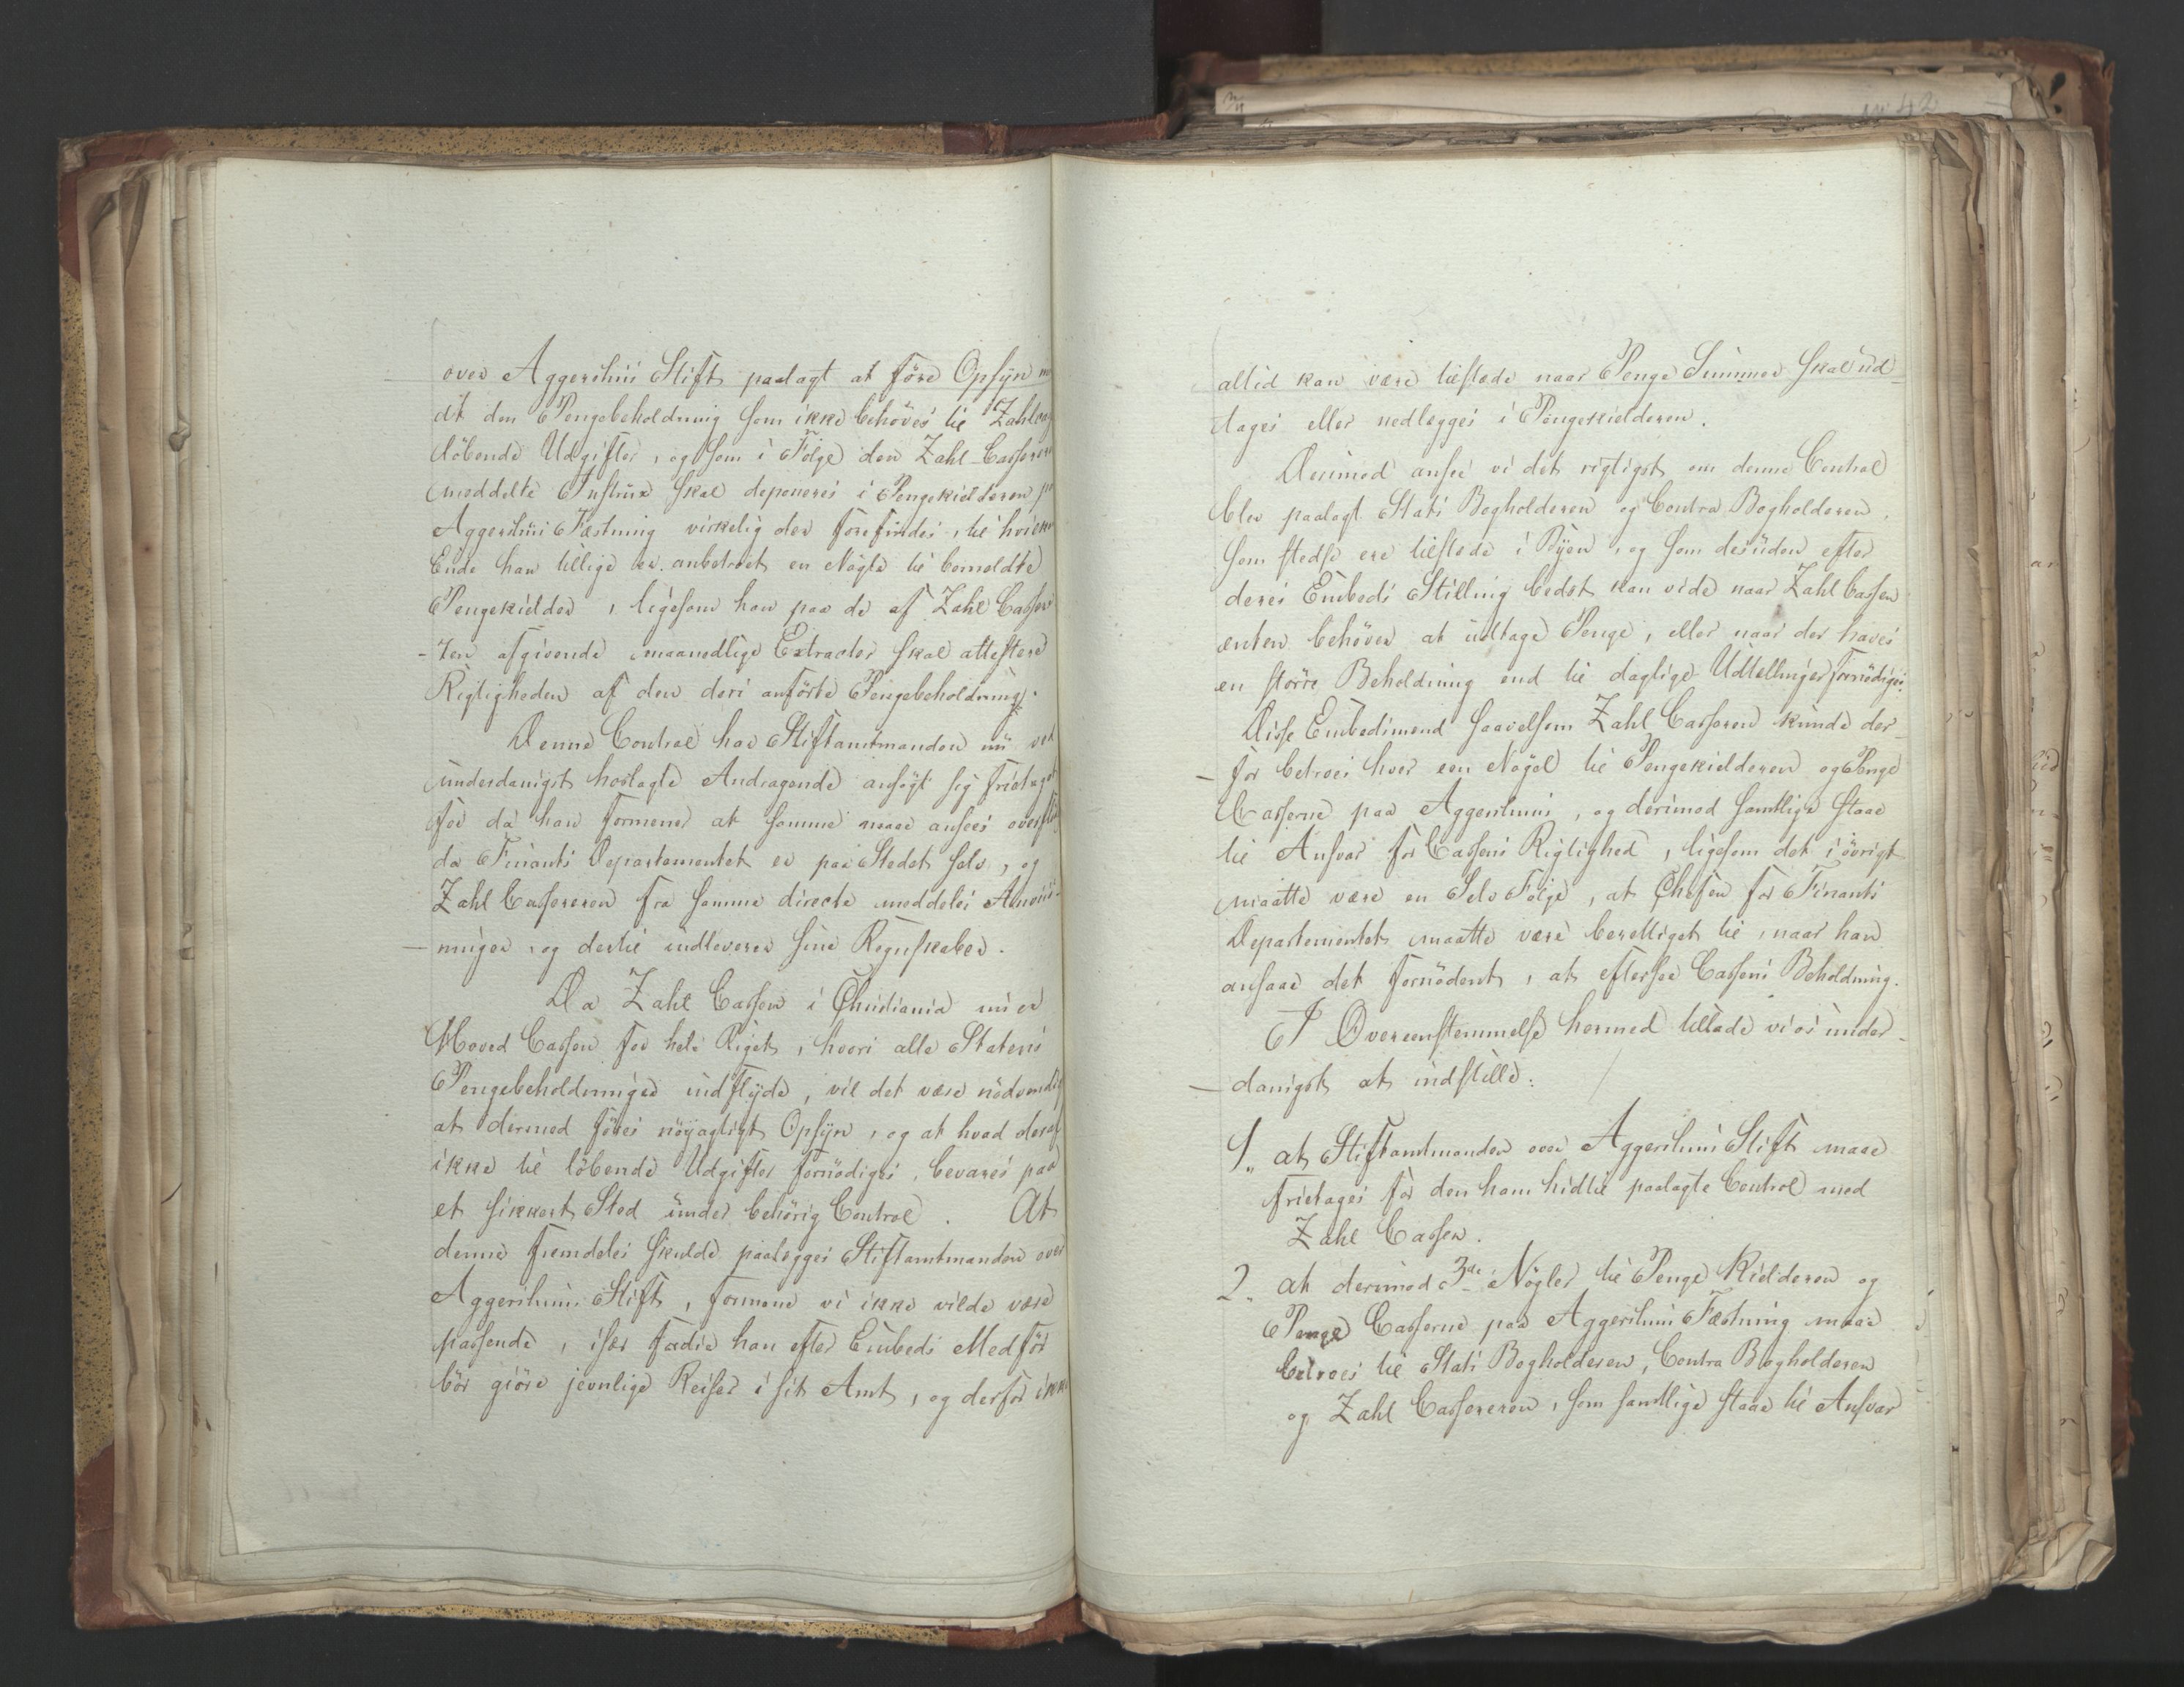 over Aggershuus Stift paalagt at före Opsÿn
at den Pengebeholdning som ikke behöves til Zahlens
löbende Udgifter, og som i Fölge den Zahl-Casserer
meddelte Instrux skal deponeres i Pengekielderen
Aggershuus Fæstning virkelig der forefindes, til hvilken
Ende han tillige er anbetroet en Nögle til bemeldte
Pengekielder, ligesom han paa de af Zahl Casser-
-ren afgivende maanedlige Extracter skal attestere
Rigtigheden af den deri anförte Pengebeholdning.
Denne Control har Stiftamtmanden nu ved
underdanigst hoslagte Andragende ansögt sig fritaget
for da han formener at samme maae ansees
da Finants Departementet er paa Stedet selv, og
Zahl Cassereren fra samme directe meddeles Anviis-
-ninger, og dertil indleverer sine Regnskaber.
Da Zahl Cassen i Christiania nu er
Hoved Cassen for hele Riget, hvori alle Statens
Pengebeholdninger indflÿde, vil det være nödvendig
at dermed föres nöÿagtigt Opsÿn, og at hvad deraf
ikke til löbende Udgifter fornödiges, bevares paa
et sikkert Sted under behörig Control. At
denne fremdeles skulde paalegges Stiftamtmanden over
Aggershuus Stift, formene vi ikke vilde være
passende, især fordie han efter Embeds Medför
bör giöre jevnlige Reiser i sit Amt, og derfor ikke
altid kan være tilstede naar Penge Summer skal ud-
tages eller nedlegges i Pengekielderen.
Derimod ansee vi det rigtigst om denne Control
blev paalagt Stats Bogholderen og Contra Bogholderen,
som stedse ere tilstede i Bÿen, og som desuden efter
deres Embeds Stilling bedst kan vide naar Zahl Cassen
enten behöver at udtage Penge, eller naar der haves
en större Beholdning end til daglige Udtellinger fornödiges.
Disse Embedsmend saavelsom Zahl Casseren kunde der-
-for betroes hver een Nögel til Pengekielderen og Penge
Casserne paa Aggershuus, og derimod samtlige staae
til Ansvar for Cassens Rigtighed, ligesom det i övrigt
maatte være en Selv Fölge, at Chefen for Finants
Departementet maatte være berettiget til, naar han
ansaae det fornödent, at eftersee Cassens Beholdning.
I Overeenstemmelse hermed tillade vi os under-
-danigst at indstille:
1. at Stiftamtmanden over Aggershuus Stift maae
fritages for den ham hidtil paalagte Control med
Zahl Cassen.
2. at derimod 3de Nögler til Penge Kielderen og
Penge Casserne paa Aggershuus Fæstning maae
betroes til Stats Bogholderen, Contra Bogholderen
og Zahl Cassereren, som samtlige staae til Ansvar